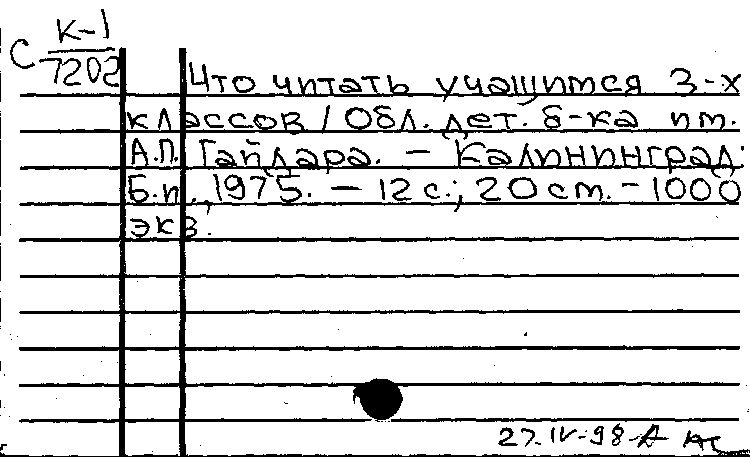 К-1
С 7202
Что читать учащимся 3-х
классов / Обл. дет. б-ка им.
А.П. Гайдара. — Калининград:
Б.и., 1975. — 12 с.; 20 см. - 1000
экз.
27.IV-98-А